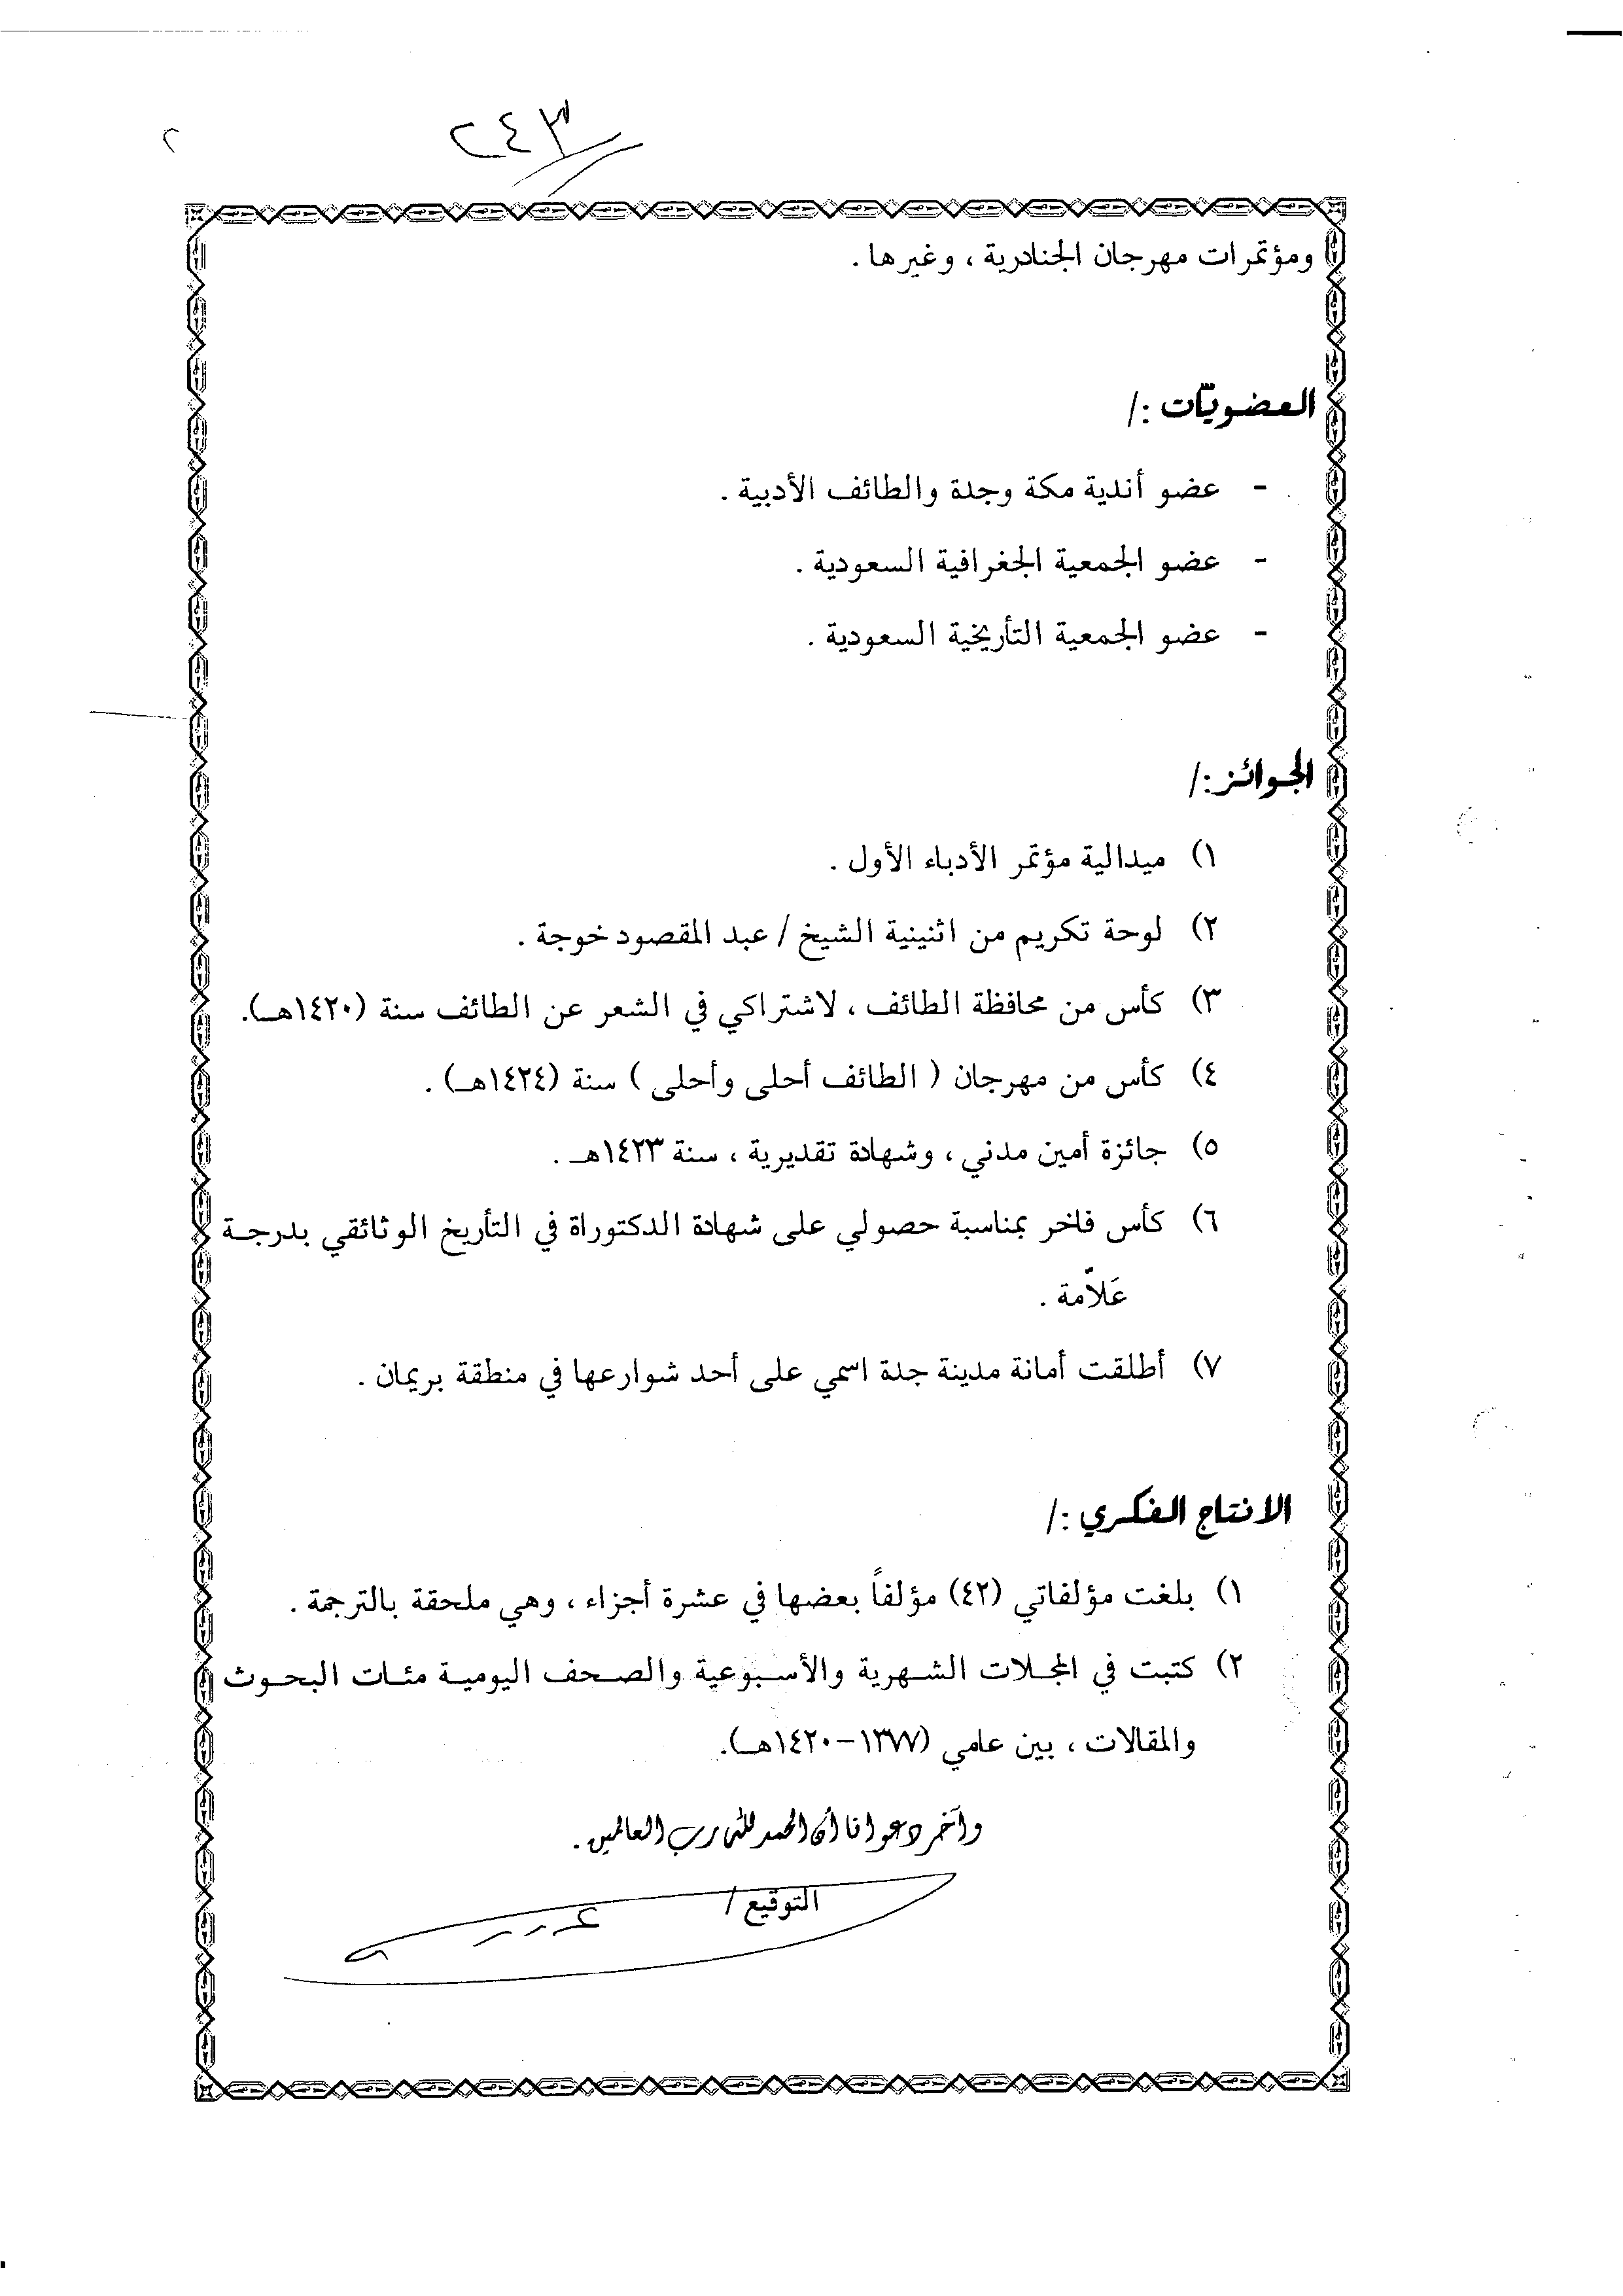 ٢٤٣
٢
ومؤتمرات مهرجان الجنادرية ، وغيرها .
العضويّات :/
- عضو أندية مكة وجدة والطائف الأدبية .
- عضو الجمعية الجغرافية السعودية .
- عضو الجمعية التأريخية السعودية .
الجوائز :/
١) ميدالية مؤتمر الأدباء الأول .
٢) لوحة تكريم من اثنينية الشيخ / عبد المقصود خوجة .
٣) كأس من محافظة الطائف ، لاشتراكي في الشعر عن الطائف سنة (١٤٢٠هـ).
٤) كأس من مهرجان ( الطائف أحلى وأحلى ) سنة (١٤٢٤هـ) .
٥) جائزة أمين مدني ، وشهادة تقديرية ، سنة ١٤٢٣هـ .
٦) كأس فاخر بمناسبة حصولي على شهادة الدكتوراة في التأريخ الوثائقي بدرجة
عَلاّمة .
٧) أطلقت أمانة مدينة جدة اسمي على أحد شوارعها في منطقة بريمان .
الانتاج الفكري :/
١) بلغت مؤلفاتي (٤٢) مؤلفاً بعضها في عشرة أجزاء ، وهي ملحقة بالترجمة .
٢) كتبت في المجلات الشهرية والأسبوعية والصحف اليومية مئات البحوث
والمقالات ، بين عامي (١٣٧٧-١٤٢٠هـ).
وآخر دعوانا أن الحمد لله رب العالمين .
التوقيع /